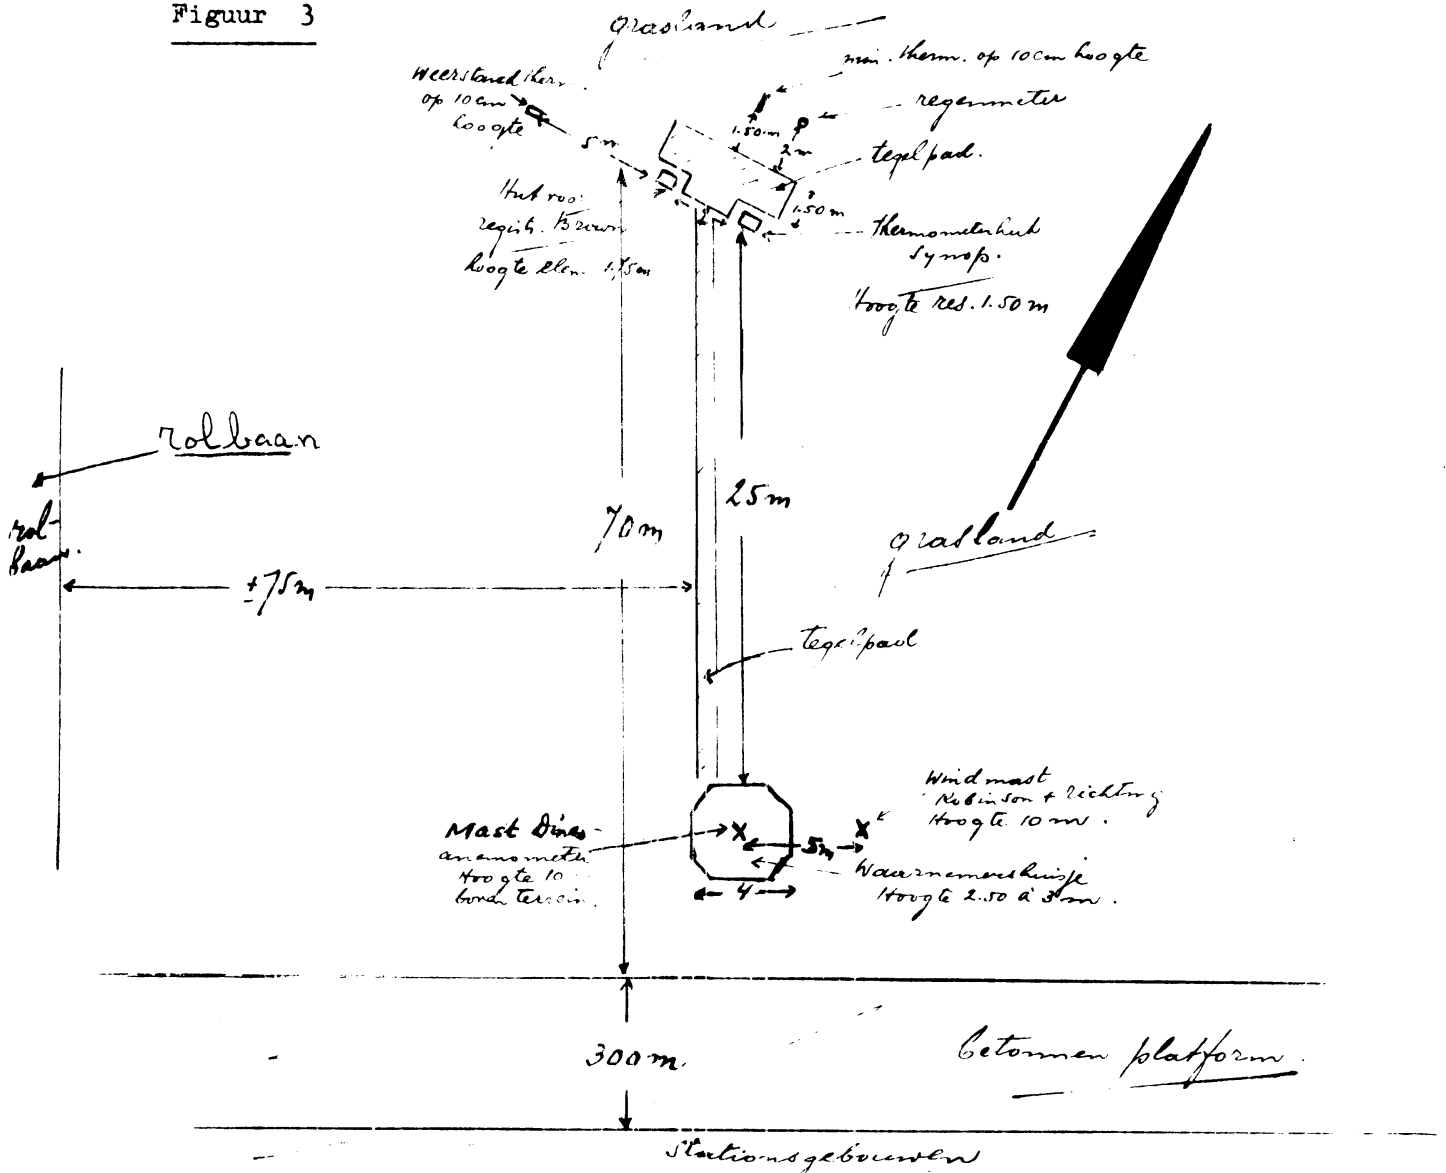 Figuur 3
grasland
min. therm. op 10cm hoogte
Weerstand therm.
op 10cm
hoogte
regenmeter
5m
1.50m
2m
tegelpad.
1.50m
Hut voo
regist. Brown
hoogte elem. 1.75m
2
Thermometerhut
Synop.
Hoogte res. 1.50m
rolbaan
rol-
baan.
25m
70m
grasland
±75m
tegelpad
Windmast
Robinson + richting
Hoogte 10m.
Mast Dines-
anemometer
Hoogte 10
boven terrein.
5m
Waarnemershuisje
Hoogte 2.50 à 3m.
4
300m.
betonnen platform.
Stationsgebouwen